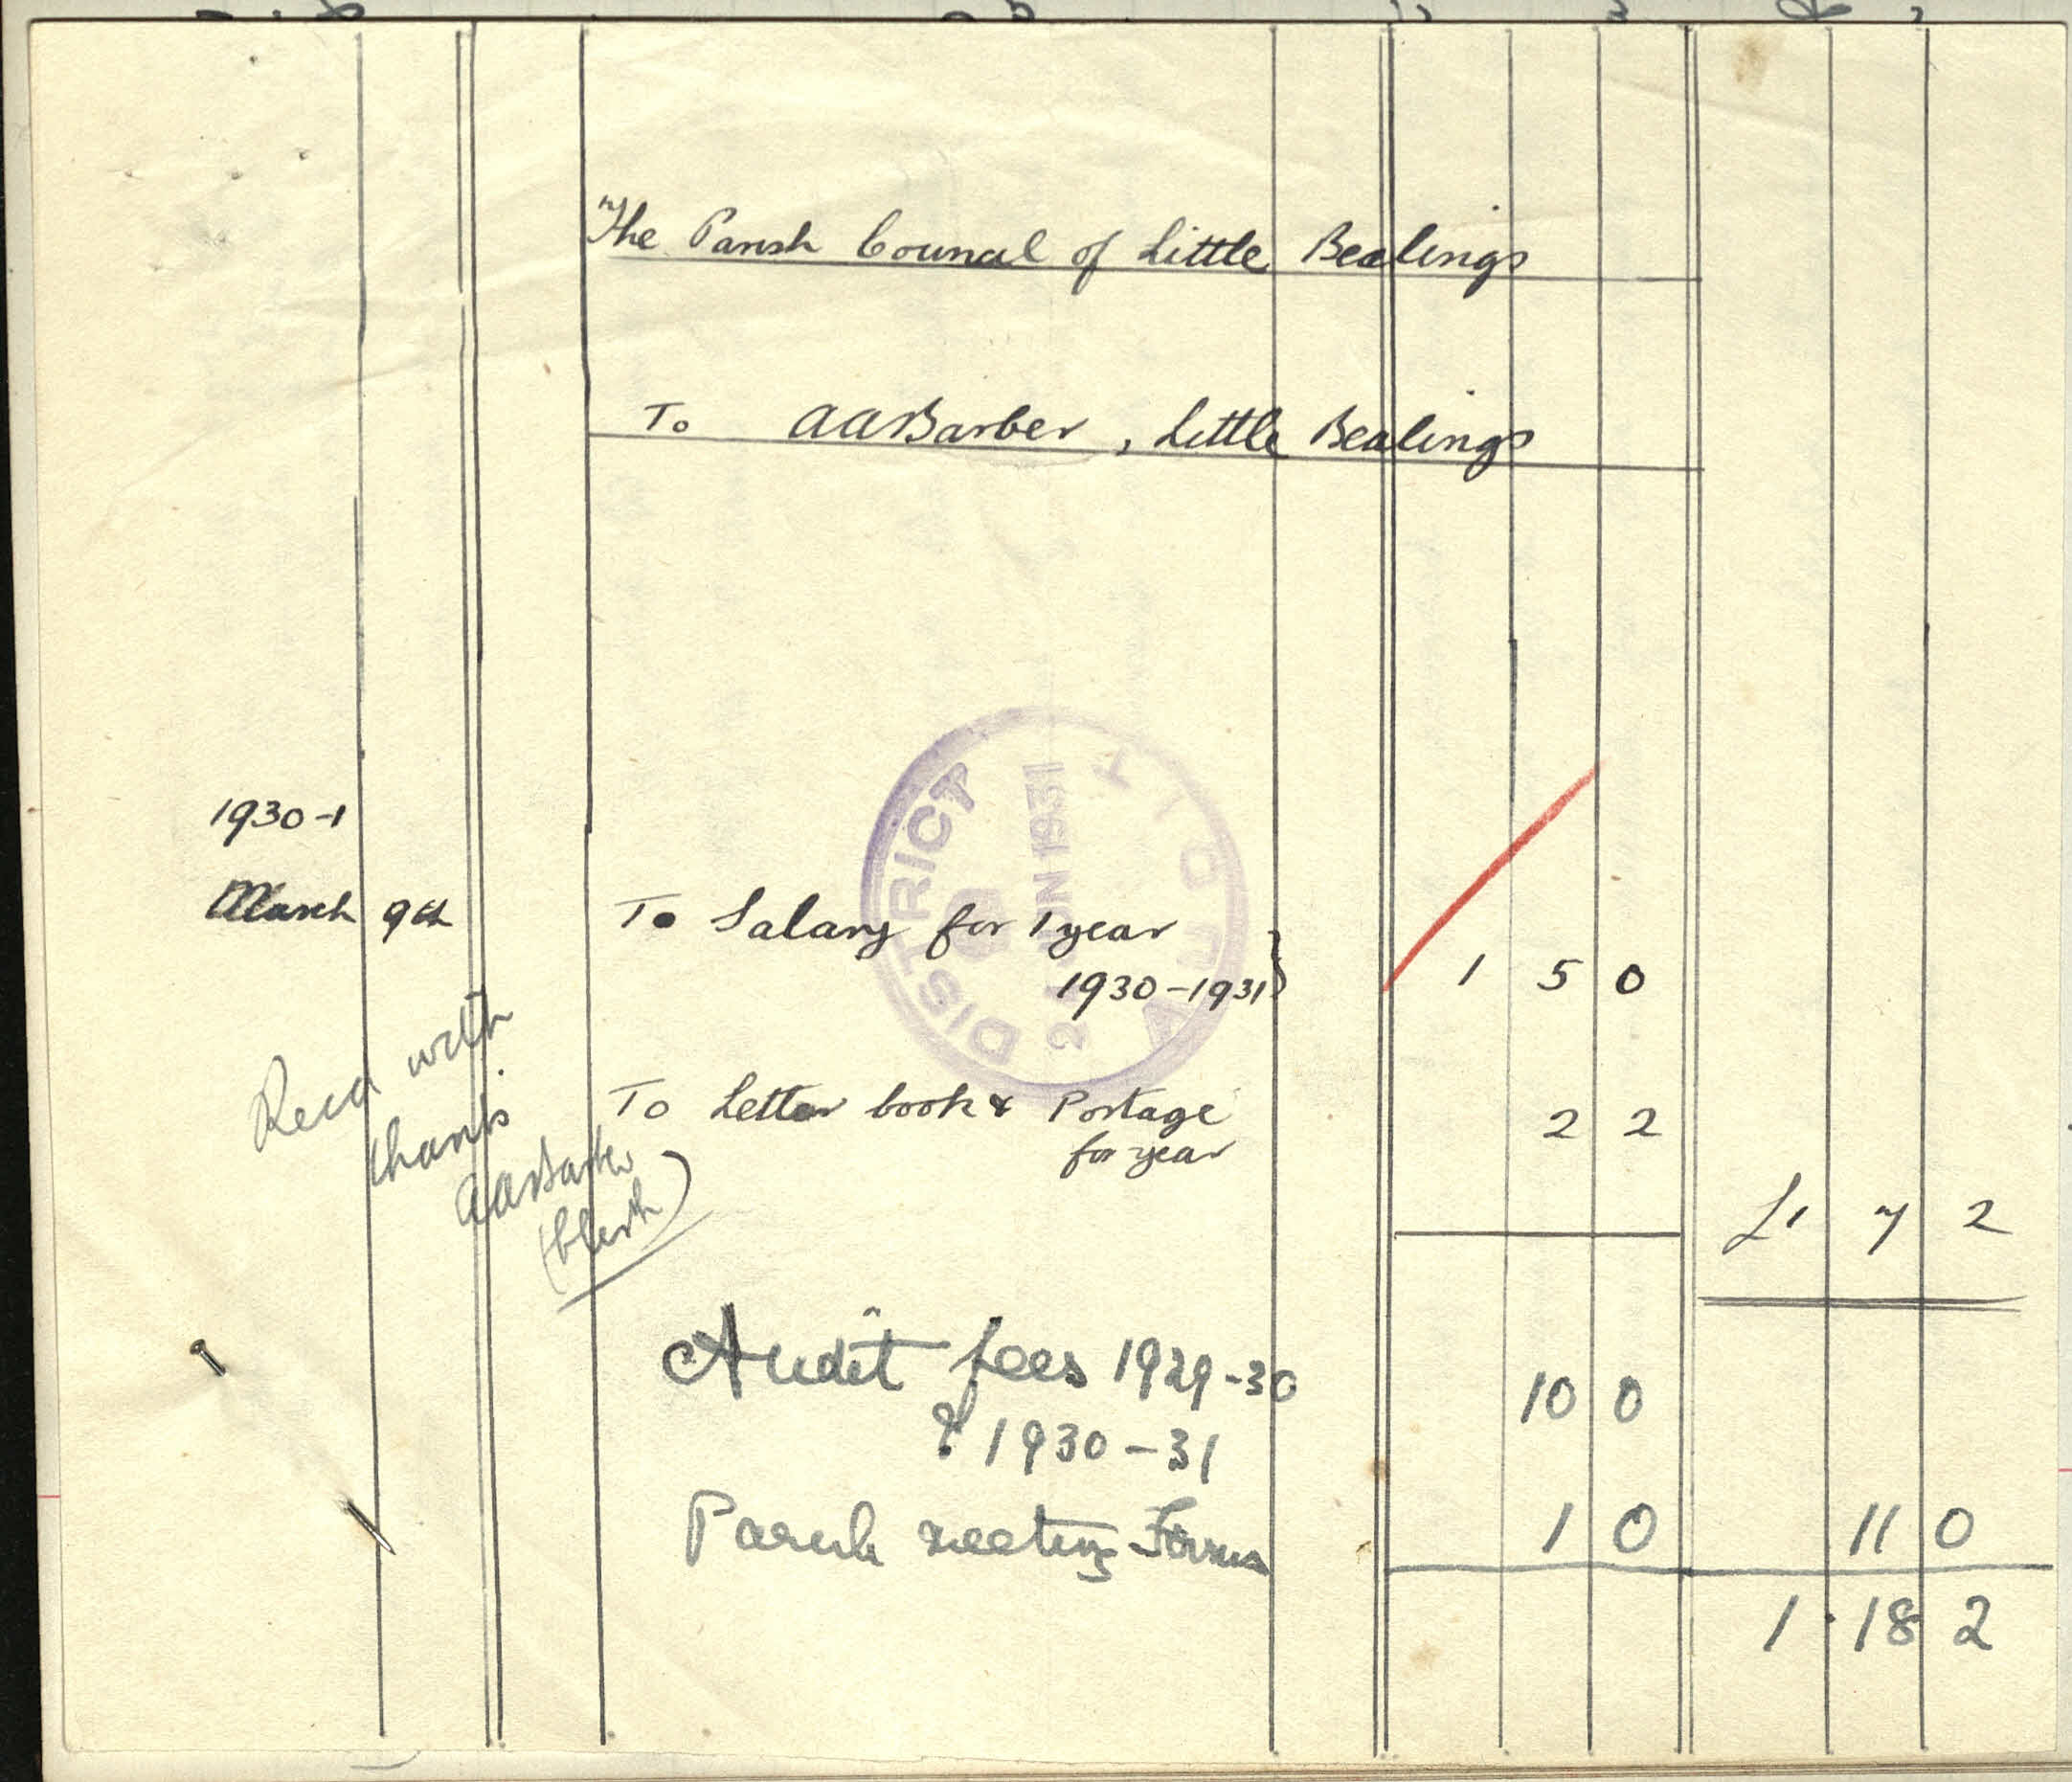 The Parish Council of Little Bealings
To AABarber, Little Bealings
1930-1
March 9th To Salary for 1 year
1930-1931 } 1 5 0
To Letter book & Postage 2 2
for year
£1 7 2
Recd with
thanks
AABarber
(Clerk)
Audit fees 1929-30 10 0
& 1930-31
Parish meeting Forms 1 0 11 0
1 18 2
DISTRICT AUDIT
2 JUN 1931